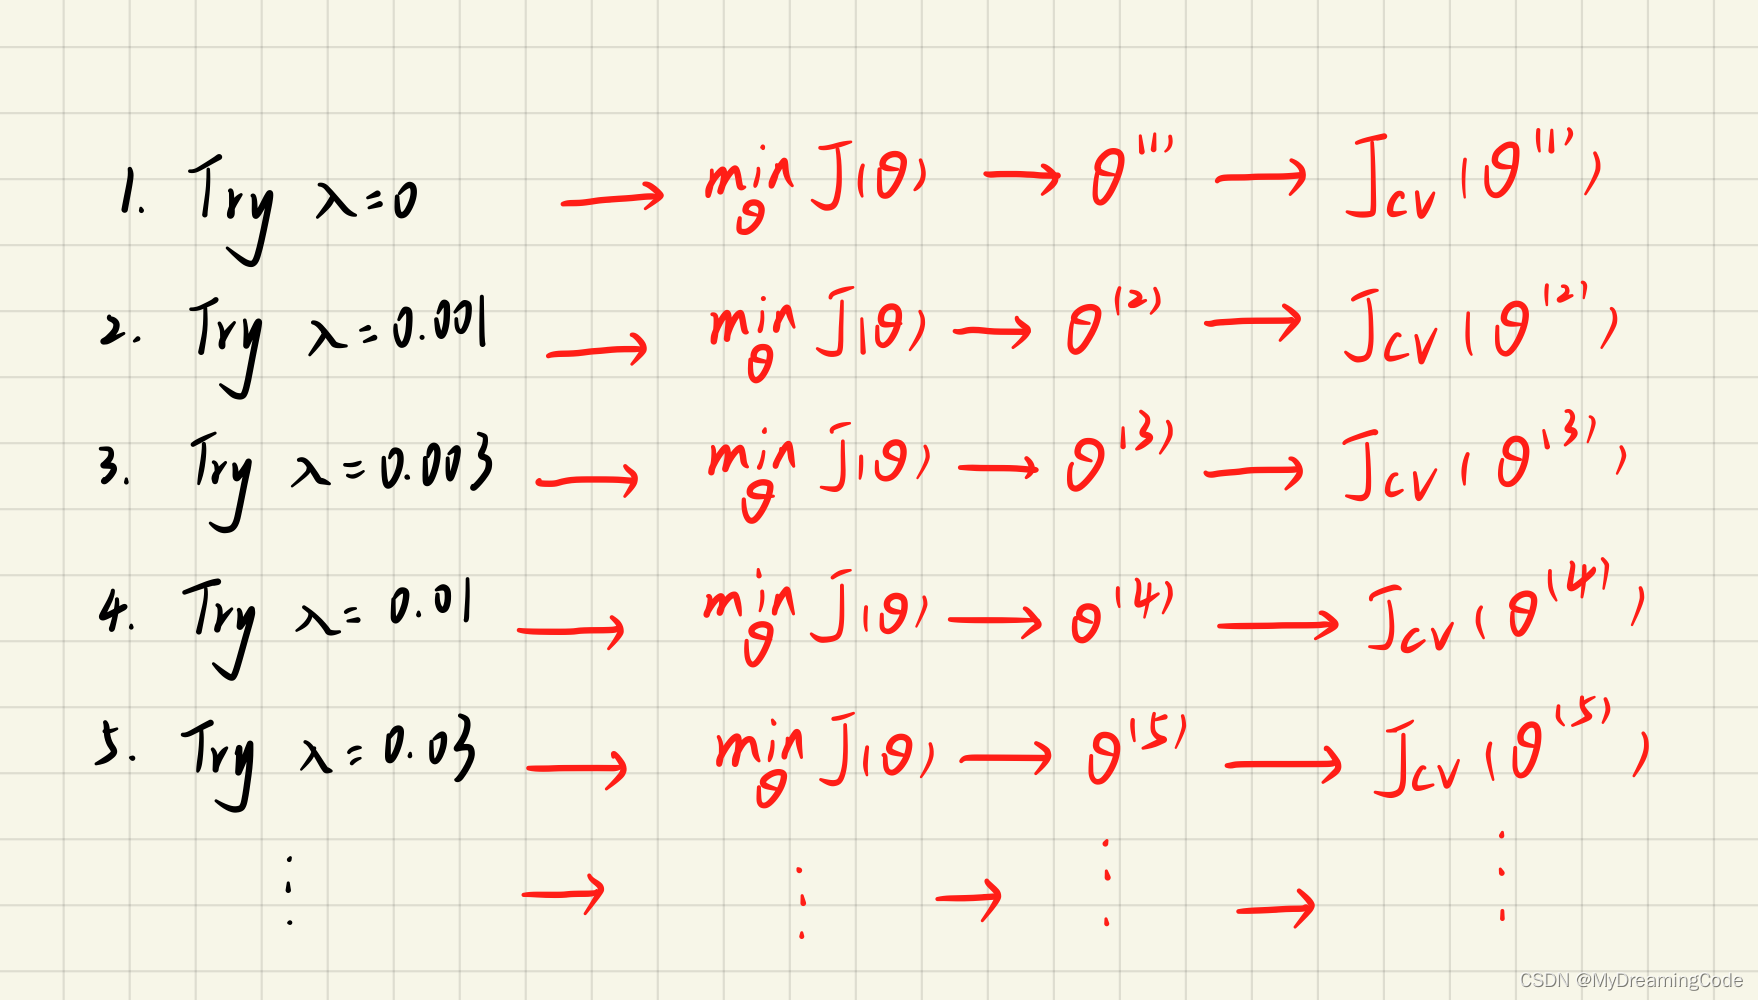 1. Try λ=0 → min J(θ) → θ⁽¹⁾ → J_cv(θ⁽¹⁾)
θ
2. Try λ=0.001 → min J(θ) → θ⁽²⁾ → J_cv(θ⁽²⁾)
θ
3. Try λ=0.003 → min J(θ) → θ⁽³⁾ → J_cv(θ⁽³⁾)
θ
4. Try λ=0.01 → min J(θ) → θ⁽⁴⁾ → J_cv(θ⁽⁴⁾)
θ
5. Try λ=0.03 → min J(θ) → θ⁽⁵⁾ → J_cv(θ⁽⁵⁾)
θ
⋮ → ⋮ → ⋮ → ⋮
CSDN @MyDreamingCode